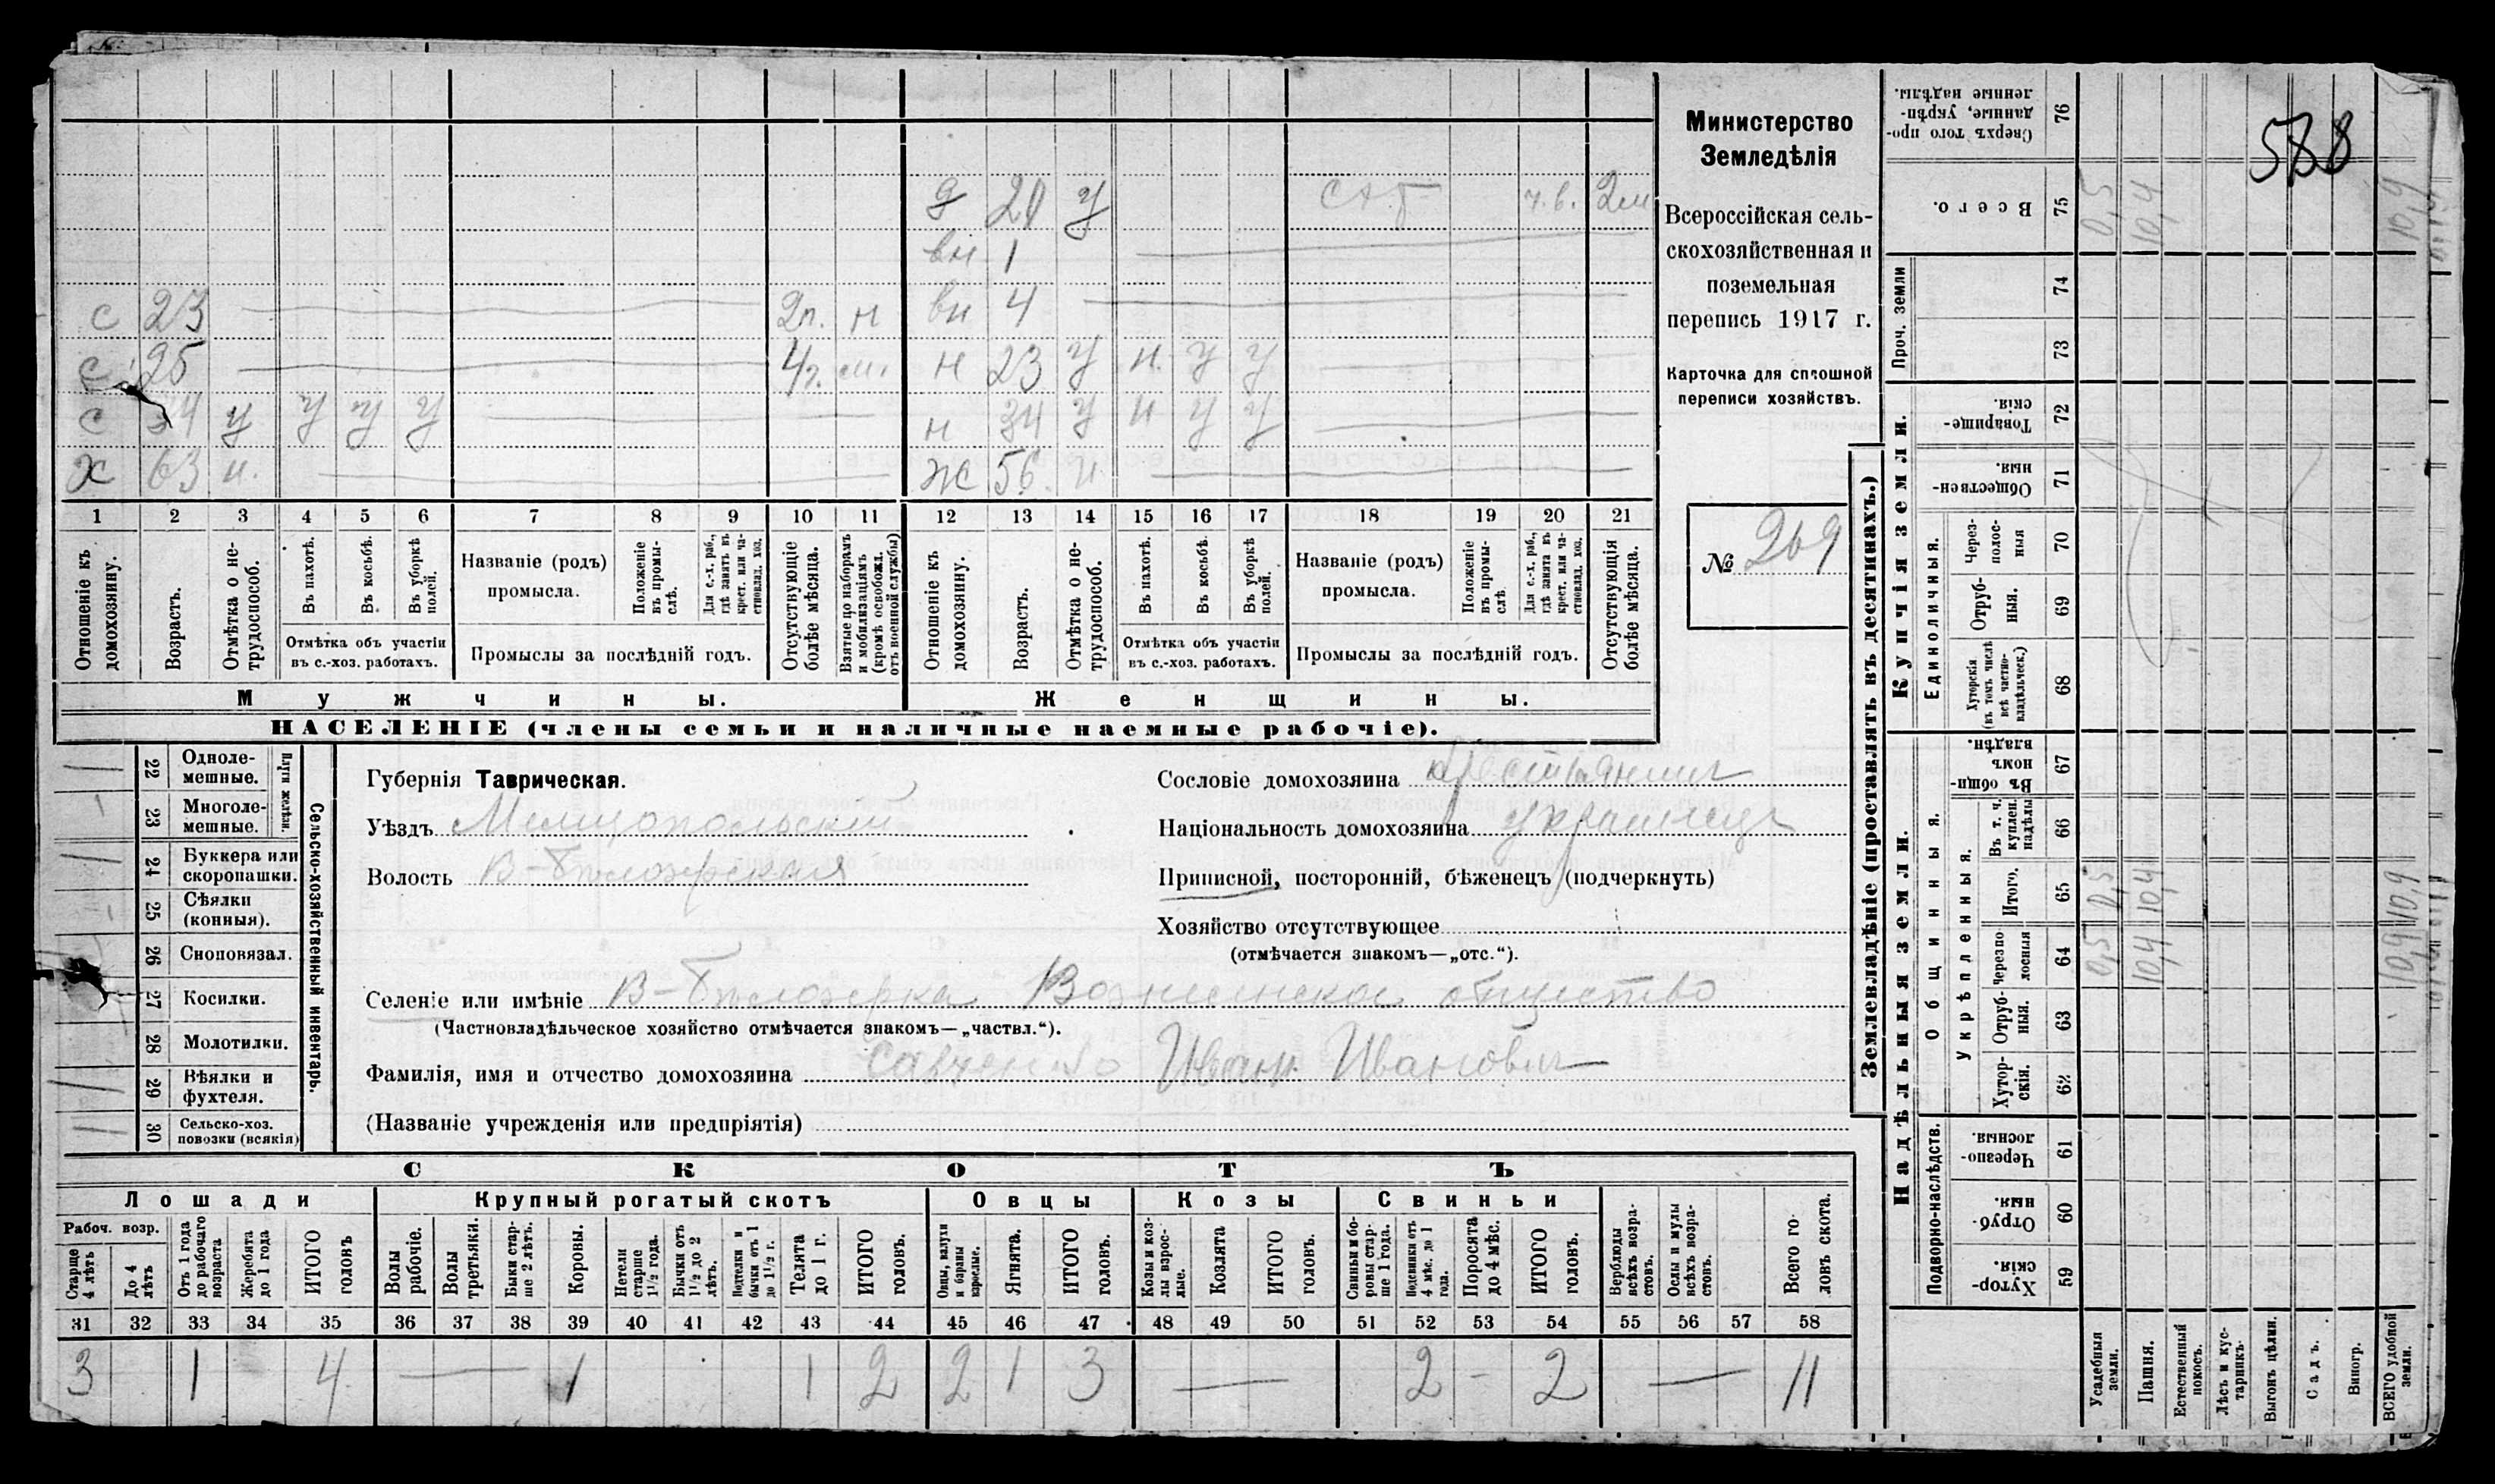 588
д 20 у ч.в. 2м
вн 1
с 23 2г. н вн 4
с 25 4г. н 23 у н. у у
с 34 у у у у н 34 у н у у
х 63 н. ж 56 н.
1 2 3 4 5 6 7 8 9 10 11 12 13 14 15 16 17 18 19 20 21
Отношеніе къ домохозяину.
Возрастъ.
Отмѣтка о нетрудоспособ.
Въ пахотѣ.
Въ косьбѣ.
Въ уборкѣ полей.
Отмѣтка объ участіи
въ с.-хоз. работахъ.
Названіе (родъ)
промысла.
Положеніе въ промыслѣ.
Для с.-х. раб., гдѣ занятъ въ крест. или частновлад. хоз.
Промыслы за послѣдній годъ.
Отсутствующіе болѣе мѣсяца.
Взятые по наборамъ и мобилизаціямъ (кромѣ освобожд. отъ военной службы)
Отношеніе къ домохозяину.
Возрастъ.
Отмѣтка о нетрудоспособ.
Въ пахотѣ.
Въ косьбѣ.
Въ уборкѣ полей.
Отмѣтка объ участіи
въ с.-хоз. работахъ.
Названіе (родъ)
промысла.
Положеніе въ промыслѣ.
Для с.-х. раб., гдѣ занята въ крест. или частновлад. хоз.
Промыслы за послѣдній годъ.
Отсутствующія болѣе мѣсяца.
Мужчины.
Женщины.
НАСЕЛЕНІЕ (члены семьи и наличные наемные рабочіе).
Министерство
Земледѣлія
Всероссійская сель-
скохозяйственная и
поземельная
перепись 1917 г.
Карточка для сплошной
переписи хозяйствъ.
№ 269
22 Одноле-
мешные.
23 Многоле-
мешные.
Плуги желѣзн.
24 Буккера или
скоропашки.
25 Сѣялки
(конныя).
26 Сноповязал.
27 Косилки.
28 Молотилки.
29 Вѣялки и
фухтеля.
30 Сельско-хоз.
повозки (всякія)
Сельско-хозяйственный инвентарь.
Губернія Таврическая.
Уѣздъ Мелитопольскій
Волость В-Бѣлозерская
Сословіе домохозяина крестьянинъ
Національность домохозяина украинецъ
Приписной, посторонній, бѣженецъ (подчеркнуть)
Хозяйство отсутствующее
(отмѣчается знакомъ—„отс.“).
Селеніе или имѣніе В-Бѣлозерка Вознесенское общество
(Частновладѣльческое хозяйство отмѣчается знакомъ—„частвл.“).
Фамилія, имя и отчество домохозяина Савченко Иван Иванович
(Названіе учрежденія или предпріятія)
СКОТЪ
Лошади Крупный рогатый скотъ Овцы Козы Свиньи
Рабоч. возр.
Старше 4 лѣтъ
До 4 лѣтъ
Отъ 1 года до рабочаго возраста
Жеребята до 1 года
ИТОГО головъ
Волы рабочіе.
Волы третьяки.
Быки старше 2 лѣтъ.
Коровы.
Нетели старше 1½ года.
Бычки отъ 1½ до 2 лѣтъ.
Подтелки и бычки отъ 1 до 1½ г.
Телята до 1 г.
ИТОГО головъ.
Овцы, валухи и бараны взрослые.
Ягнята.
ИТОГО головъ.
Козы и козлы взрослые.
Козлята
ИТОГО головъ.
Свиньи и боровы старше 1 года.
Подсвинки отъ 4 мѣс. до 1 года.
Поросята до 4 мѣс.
ИТОГО головъ.
Верблюды всѣхъ возрастовъ.
Ослы и мулы всѣхъ возрастовъ.
Всего головъ скота.
31 32 33 34 35 36 37 38 39 40 41 42 43 44 45 46 47 48 49 50 51 52 53 54 55 56 57 58
3 1 4 — 1 1 2 2 1 3 — 2 - 2 — 11
Землевладѣніе (проставлять въ десятинахъ.)
Надѣльныя земли.
Купчія земли.
Проч. земли
Подворно-наслѣдств.
Общинныя.
Укрѣпленныя.
Единоличныя.
Сверхъ того проданные, укрѣпленные надѣлы. 76
Всего. 75 0,5 10,4 10,9
74
73
Товарищескія. 72
Общественныя. 71
Черезполосныя 70
Отрубныя. 69
Хуторскія (въ томъ числѣ всѣ частновладѣльческ.) 68
Въ общинномъ владѣн. 67
Въ т. ч. куплен. надѣлы 66
Итого. 65 0,5 10,4 10,9
Черезполосныя 64 0,5 10,4 10,9
Отрубныя. 63
Хуторскія. 62
Черезполосныя. 61
Отрубныя. 60
Хуторскія. 59
Усадебныя земли.
Пашня.
Естественный покосъ.
Лѣсъ и кустарникъ.
Выгонъ цѣлин.
Садъ.
Виногр.
ВСЕГО удобной земли.